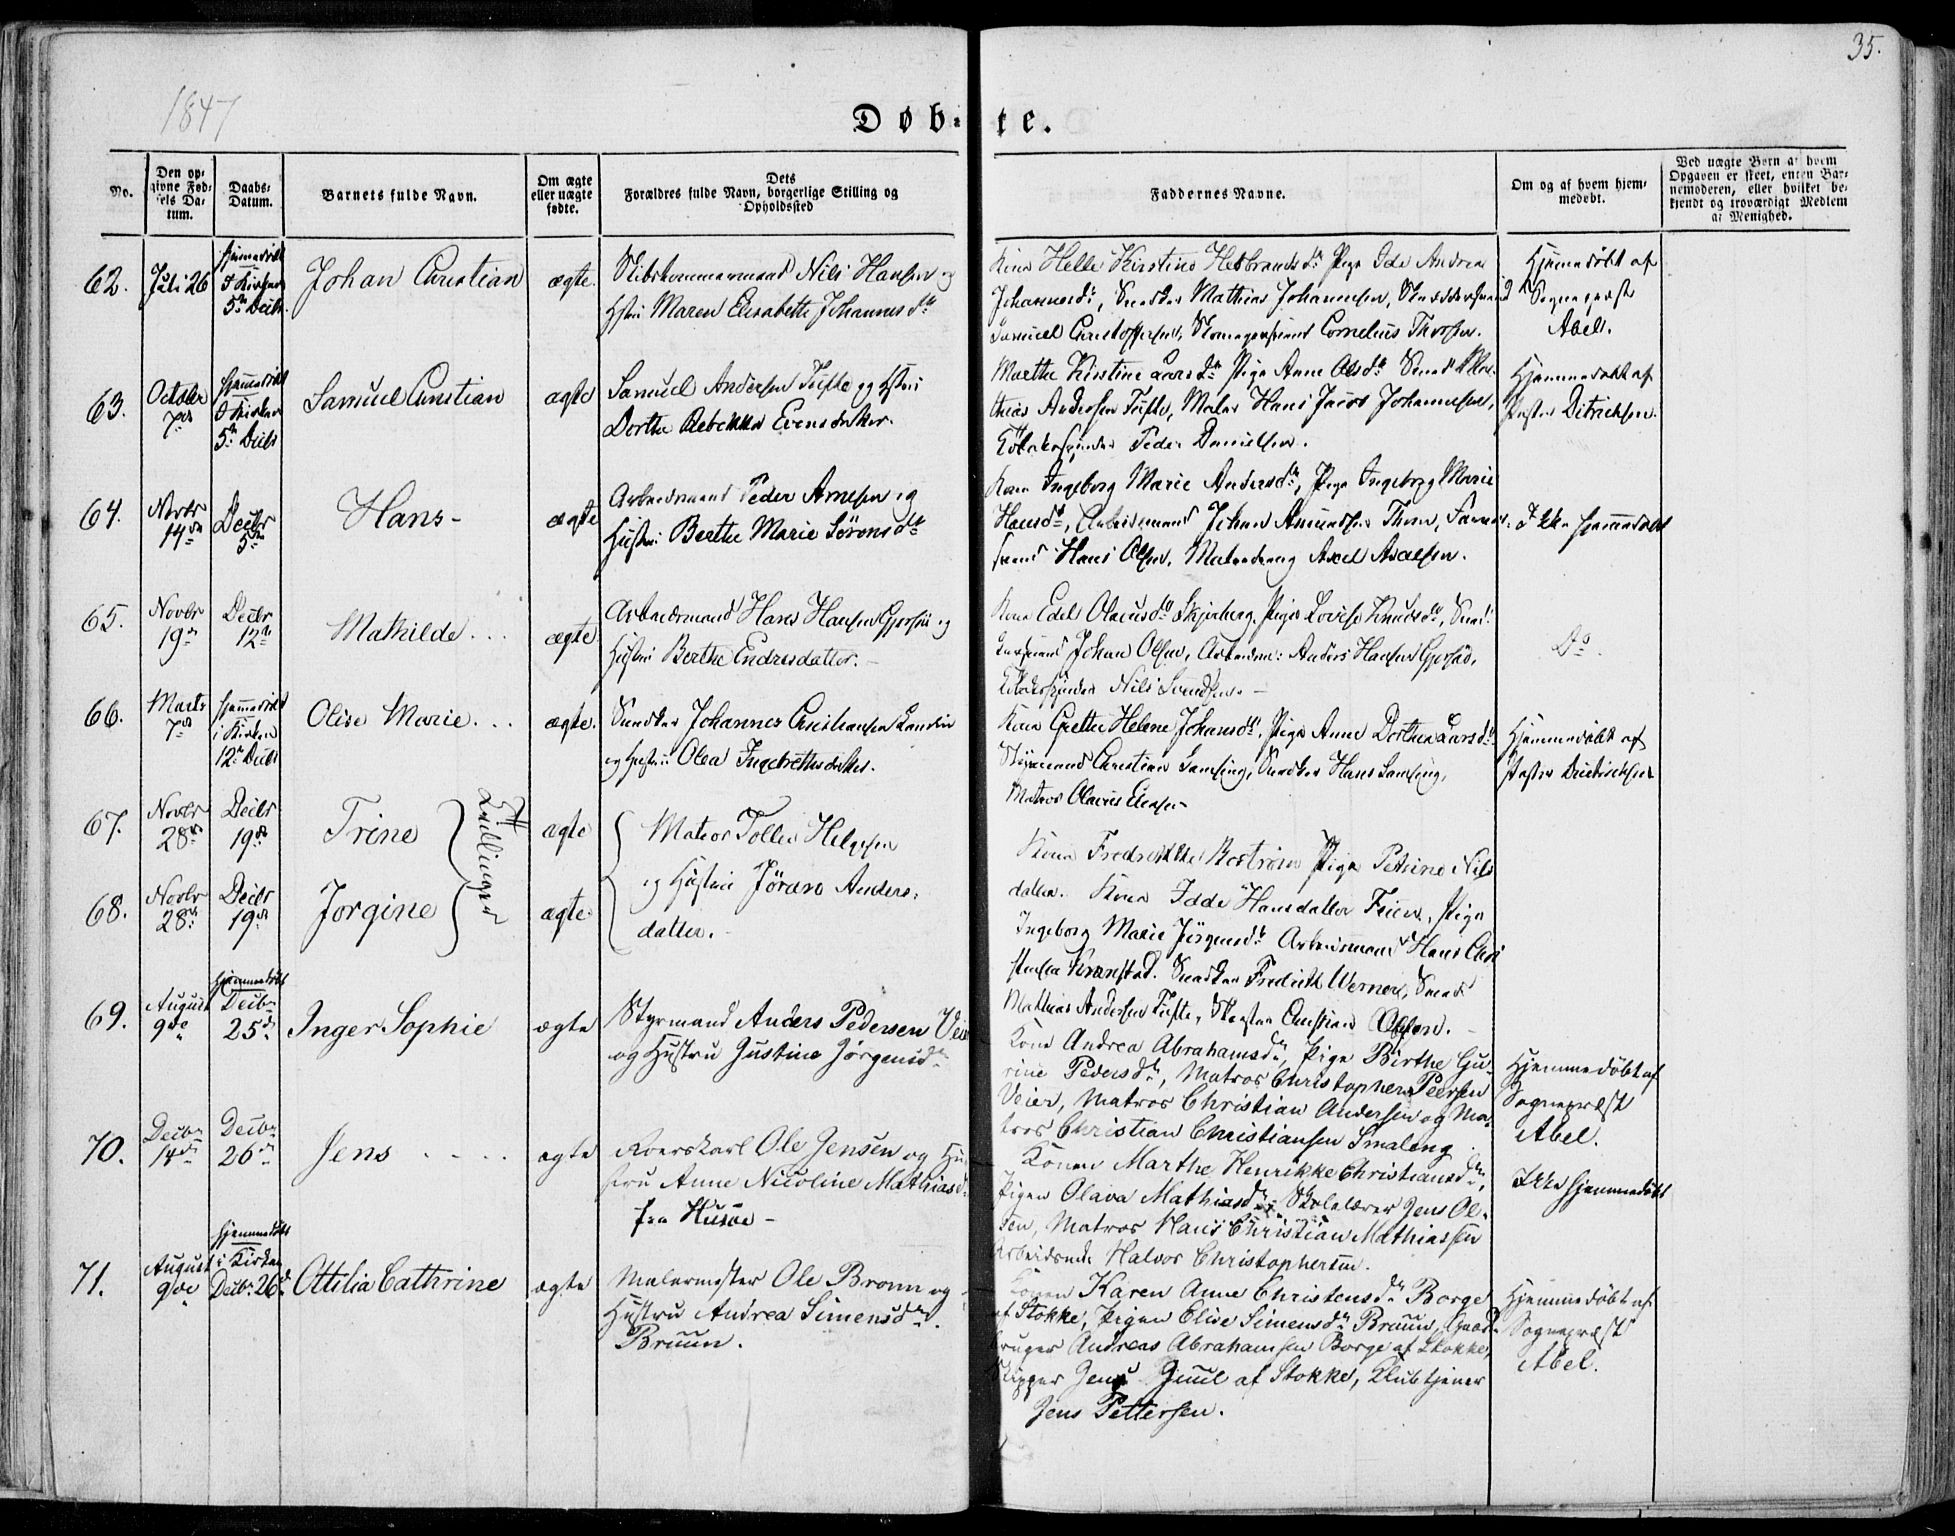 35.
1847
Døb- te.
No.
Den op-
givne Fød-
sels Da-
tum.
Daabs-
Datum.
Barnets fulde Navn.
Om ægte
eller uægte
fødte.
Dets
Forældres fulde Navn, borgerlige Stilling og
Opholdssted
Faddernes Navne.
Om og af hvem hjem-
medøbt.
Ved uægte Børn af hvem
Opgaven er skeet, enten Bar-
nemoderen, eller hvilket be-
kjendt og troværdigt Medlem
af Menighed.
62.
Juli 26
hjemmedøbt
I Kirken
5te Decbr.
Johan Christian
ægte.
Nils Hansen og
Hstr: Maren Elisabette Johannesdtr
Kone Helle Kirstine Pige Ide Andrea
Johannesdr, Snedker Mathias Johannesen,
Samuel Christoffersen, Cornelius Thorsen.
Hjemmedøbt af
Sognepræst
Abel.
63.
October
7de
hjemmedøbt
I Kirken
5te Decbr
Samuel Christian
ægte
Samuel Andersen Tufte og Hstr:
Dorthe Rebekka Evensdatter.
Marthe Kirstine Larsdtr Pige Anne Olsdtr Snedk Ma-
thias Andersen Tufte, Maler Hans Jacob Johannesen,
Peder Danielsen.
Hjemmedøbt af
Pastor Ditrichsen.
64.
Novbr
14de
Decbr
5te
Hans -
ægte
Arbeidsmand Peder Arnesen og
Hustru Berthe Marie Sørensdtr
Kone Ingeborg Marie Andersdtr, Pige Ingeborg Marie
Hansdtr, Arbeidsmand Johan Amundsen Thom,
Hans Olsen, Axel Axelsen.
Ikke hjemmedøbt
65.
Novbr
19de
Decbr
12te
Mathilde . . .
ægte
Arbeidsmand Hans Hansen og
Hustru Berthe Endresdatter. -
Kone Edel Olausdtr Skjerberg, Pige Lovise Knudsdtr, Sned-
Johan Olsen, Arbeidsm: Anders Hansen
Nils Svendsen. -
Do.
66.
Marts
7de
hjemmedøbt
i Kirken
12te Decbr
Olise Marie. . .
ægte.
Snedker Johannes Christiansen
og Hustru Olea Ingebrethsdatter.
Kone Grethe Helene Johansdtr, Pige Anne Dorthea Larsdtr
Styrmand Christian Samsing, Snedker Hans Samsing,
Matros Olaus
Hjemmedøbt af
Pastor Diedrichsen
67.
Novbr
28de
Decbr
19de
Trine
Et
Tvillingpar
ægte
Matros Tollev Helgesen
og Hustru Jøran Anders-
datter.
68.
Novbr
28de
Decbr
19de
Jorgine
ægte
Kone Fredrikke Bostrøm Pige Petrine Nils
datter. Kone Idde Hansdatter Feien, Pige
Ingeborg Marie Jörgensdtr Arbeidsmand Hans Chri
stensen Snedker Fredrik Werner, Sned
Mathias Andersen Tufte, Christian Olsen. -
69.
August
9de
hjemmedøbt
Decbr
25de
Inger Sophie
ægte
Styrmand Anders Pedersen Veier
og Hustru Gustine Jørgensdr
Kone Andrea Abrahamsdtr, Pige Birthe Gu-
rine Pedersdtr, Matros Christopher Pedersen
Veier, Matros Christian Andersen og Ma-
tros Christian Christiansen Smaleng
Hjemmedøbt af
Sognepræst
Abel.
70.
Decbr
1de
Decbr
26de
Jens . - - -
ægte
Roerskarl Ole Jensen og Hu-
stru Anne Nicoline Mathiasdr
fra Husøe -
Konen Marthe Henrikke Christiansdtr,
Pigen Olava Mathiasdtr, Skolelærer Jens Ol-
sen, Matros Hans Christian Mathiassen
Arbeidsmd. Halvor Christophersen.
Ikke hjemmedøbt
71.
August
9de
hjemmedøbt
i Kirken
Decbr 26de
Ottilia Cathrine
ægte
Malermester Ole Bronn og
Hustru Andrea Simensdr.
Bruun.
Konen Karen Anne Christensdr Borge
af Stokke, Pigen Elise Simensdr Bruun, Gaard-
bruger Andreas Abrahamsen Borge af Stokke,
Skipper Jens Juul af Stokke, Klubtjener
Jens Pettersen.
Hjemmedøbt af
Sognepræst
Abel.